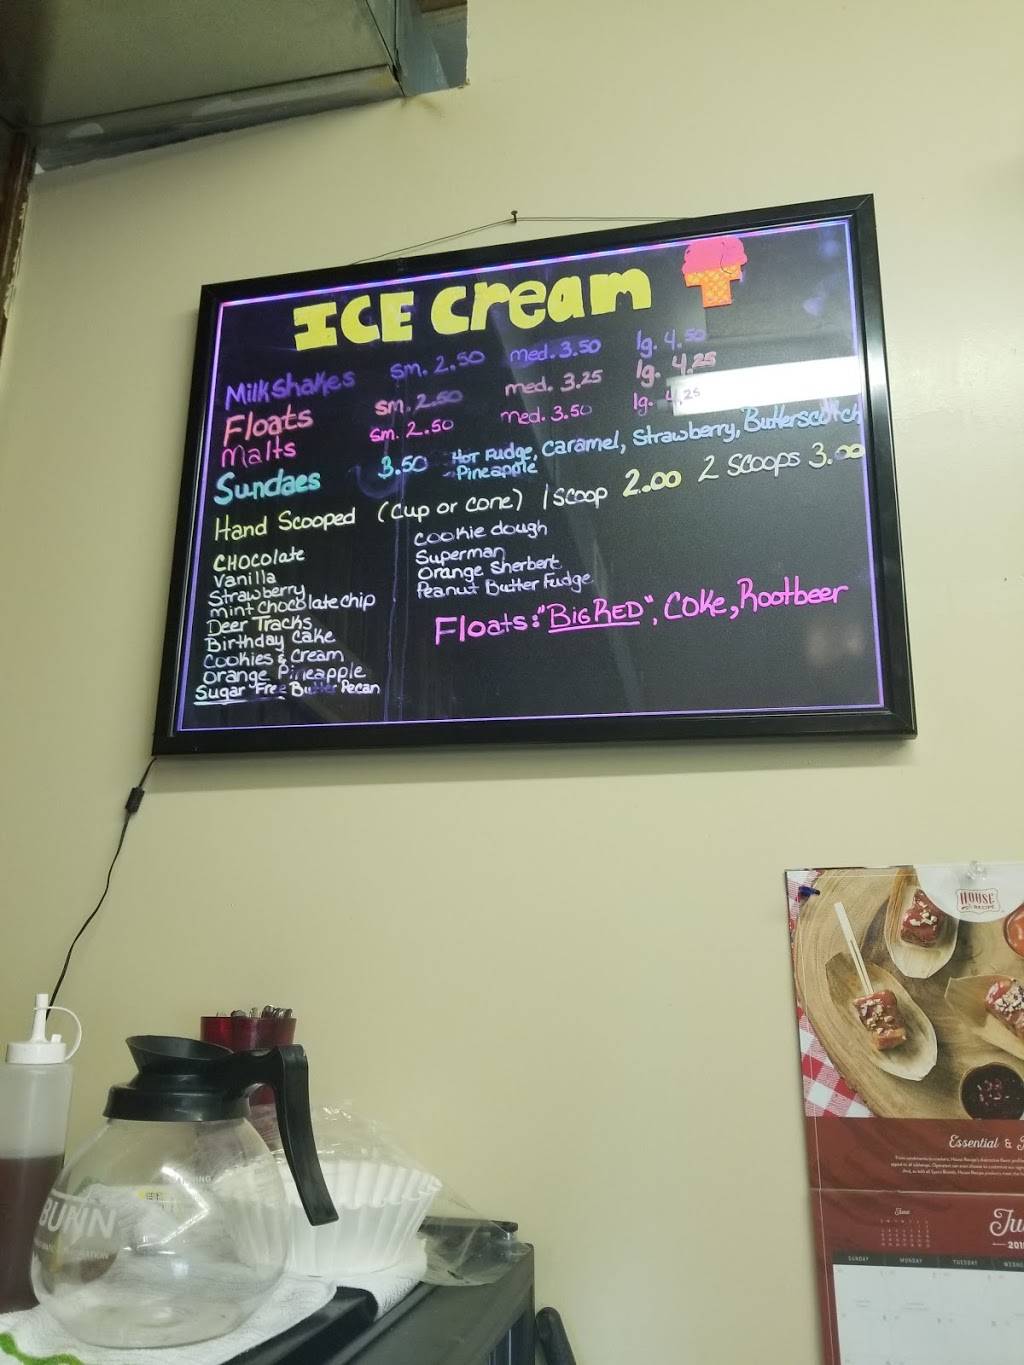 ICE Cream
Milkshakes sm. 2.50 med. 3.50 lg. 4.50
Floats sm. 2.50 med. 3.25 lg. 4.25
Malts sm. 2.50 med. 3.50 lg. 4.25
Sundaes 3.50 Hot Fudge, Caramel, Strawberry, Butterscotch
Pineapple
Hand Scooped (cup or cone) 1 scoop 2.00 2 scoops 3.00
CHOCOLate
Vanilla
Strawberry
mint chocolate chip
Deer Tracks
Birthday Cake
Cookies & Cream
Orange Pineapple
Sugar Free Butter Pecan
Cookie dough
Superman
Orange Sherbert
Peanut Butter Fudge
Floats: "BIG RED", Coke, Rootbeer
HOUSE
RECIPE
Essential &
June
SUNDAY MONDAY TUESDAY
BUNN